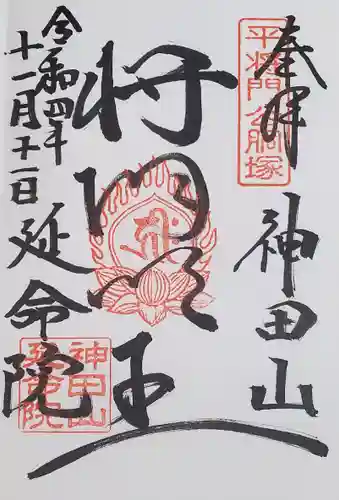 奉拝
平将門公胴塚
神田山
将門王
令和四年
十一月
延命院
神田山
延命院